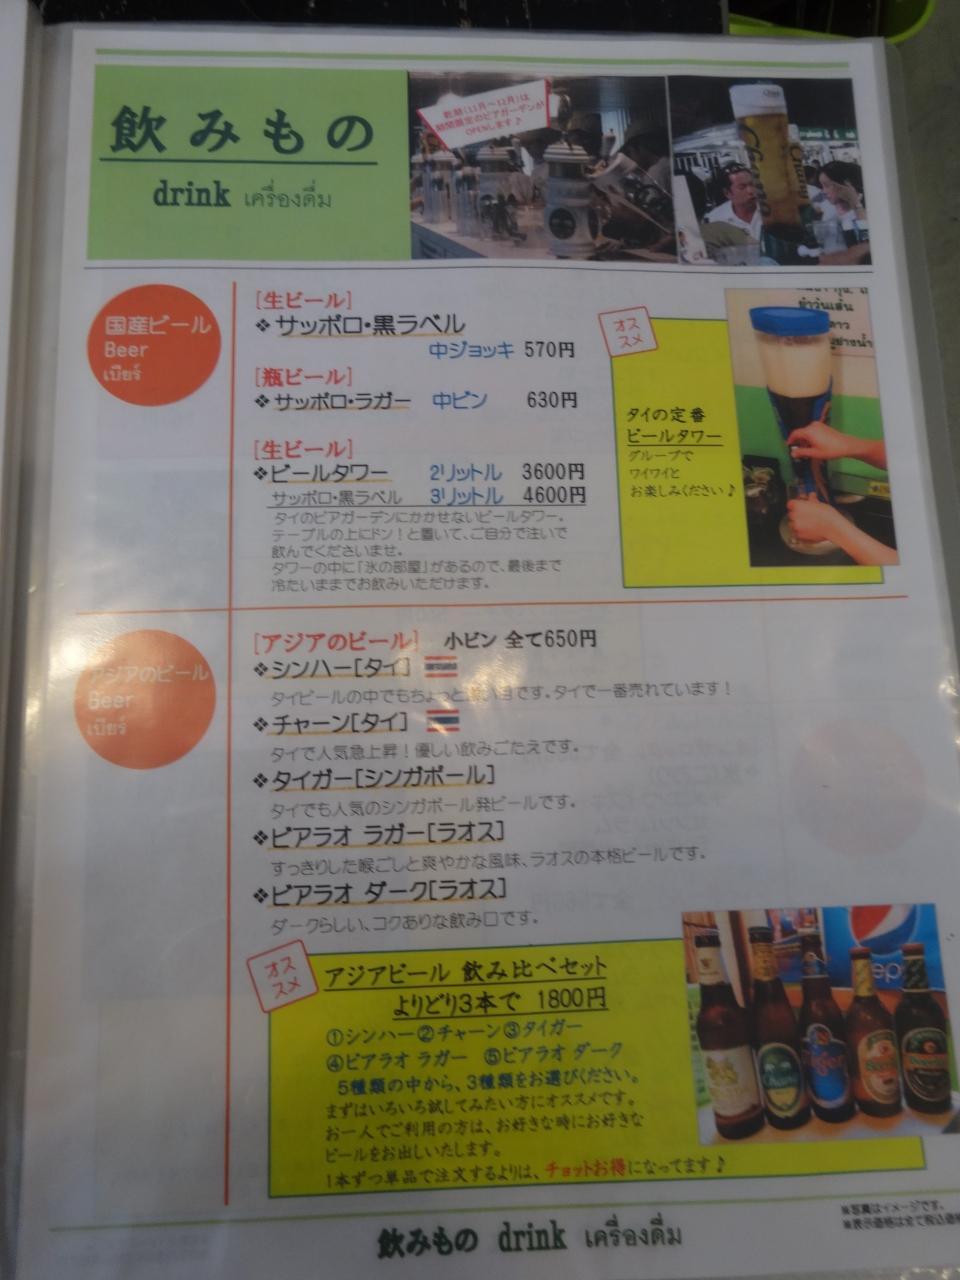 飲みもの
drink เครื่องดื่ม
乾期(11月～12月)は
期間限定のビアガーデンが
OPENします♪
国産ビール
Beer
เบียร์
[生ビール]
❖サッポロ・黒ラベル
中ジョッキ 570円
[瓶ビール]
❖サッポロ・ラガー 中ビン 630円
[生ビール]
❖ビールタワー 2リットル 3600円
サッポロ・黒ラベル 3リットル 4600円
タイのビアガーデンにかかせないビールタワー。
テーブルの上にドン！と置いて、ご自分で注いで
飲んでくださいませ。
タワーの中に「氷の部屋」があるので、最後まで
冷たいままでお飲みいただけます。
オススメ
タイの定番
ビールタワー
グループで
ワイワイと
お楽しみください♪
アジアのビール
Beer
เบียร์
[アジアのビール] 小ビン 全て650円
❖シンハー[タイ]
タイビールの中でもちょっと濃い目です。タイで一番売れています！
❖チャーン[タイ]
タイで人気急上昇！優しい飲みごたえです。
❖タイガー[シンガポール]
タイでも人気のシンガポール発ビールです。
❖ビアラオ ラガー[ラオス]
すっきりした喉ごしと爽やかな風味、ラオスの本格ビールです。
❖ビアラオ ダーク[ラオス]
ダークらしい、コクありな飲み口です。
オススメ
アジアビール 飲み比べセット
よりどり3本で 1800円
①シンハー②チャーン③タイガー
④ビアラオ ラガー ⑤ビアラオ ダーク
5種類の中から、3種類をお選びください。
まずはいろいろ試してみたい方にオススメです。
お一人でご利用の方は、お好きな時にお好きな
ビールをお出しいたします。
1本ずつ単品で注文するよりは、チョットお得になってます♪
※写真はイメージです。
※表示価格は全て税込価格
飲みもの drink เครื่องดื่ม